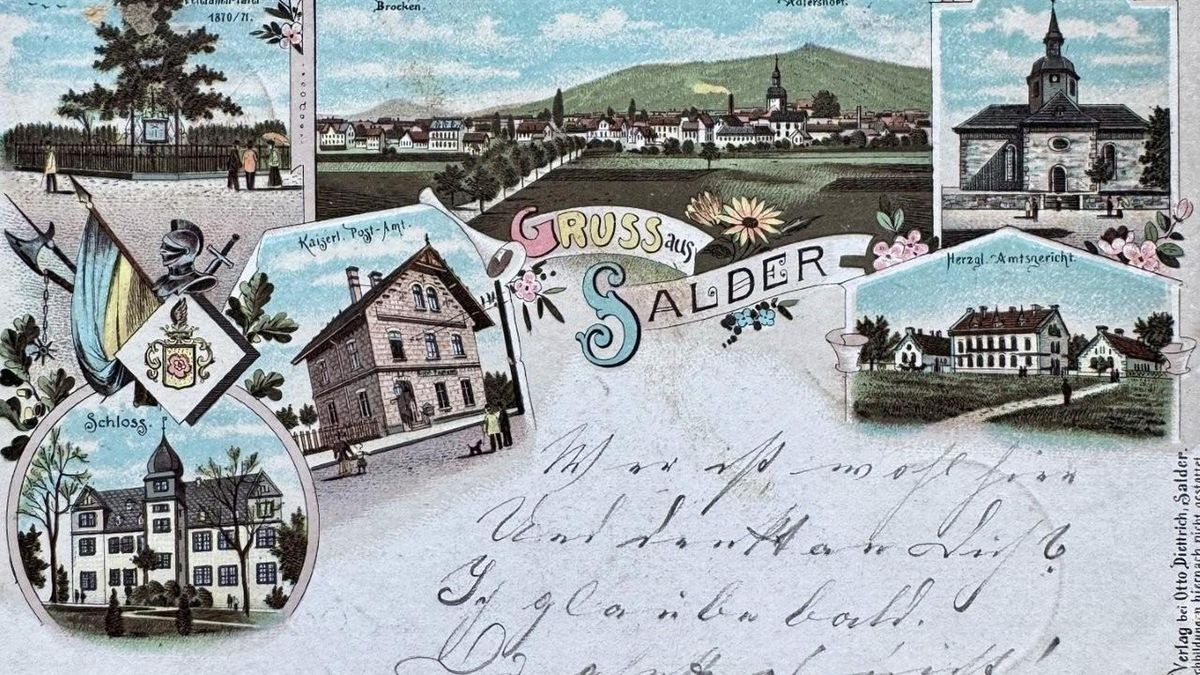 1870/71.
Brocken.
Adlershorst.
Kaiserl. Post-Amt.
GRUSS aus
SALDER
Herzgl. Amtsgericht.
Schloss.
Wer ist wohl hier
Und denkt an Dich?
Ich glaube bald.
Verlag bei Otto Diettrich, Salder.
hiernach nicht gestattet